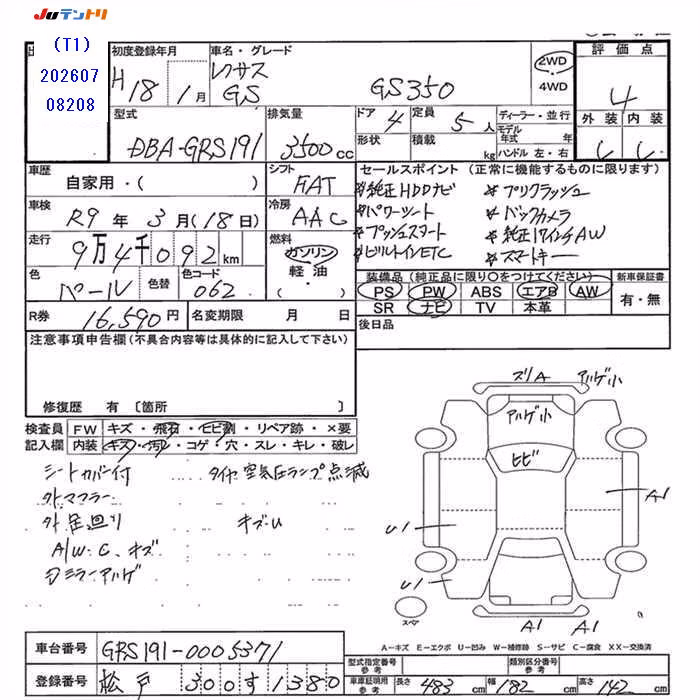 JUテントリ
(T1)
202607
08208
初度登録年月
H18 1月
車名・グレード
レクサス
GS GS350
2WD
4WD
評価点
4
外装 内装
型式
DBA-GRS191
排気量
3500cc
ドア 4
定員 5人
形状
積載 kg
ディーラー・並行
モデル年式 年
ハンドル 左・右
車歴
自家用・( )
シフト
FAT
車検
R9年3月(18日)
冷房
AAC
走行
9万4千092km
燃料
ガソリン
軽油
( )
色
パール
色替
色コード
062
セールスポイント(正常に機能するものに限ります)
*純正HDDナビ *プリクラッシュ
*パワーシート *バックカメラ
*プッシュスタート *純正17インチAW
*ビルトインETC *スマートキー
装備品(純正品に限り○をつけてください)
PS PW ABS エアB AW
SR ナビ TV 本革
新車保証書
有・無
R券 16,590円
名変期限 月 日
後日品
注意事項申告欄(不具合内容等は具体的に記入して下さい)
修復歴 有〔箇所 〕
検査員記入欄
FW キズ・飛石・ヒビ割・リペア跡・×要
内装 キズ・汚れ・コゲ・穴・スレ・キレ・破レ
シートカバー付 タイヤ空気圧ランプ点滅
外マフラー
外足廻り キズU
A/W・C、キズ
ズリA アルゲ小
アルゲ小
ヒビ
A1
U1
U1
A1 A1
スペア
A-キズ E-エクボ U-凹み W-補修跡 S-サビ C-腐食 XX-交換済
車台番号 GRS191-0005371
登録番号 松戸 300す1380
型式指定番号 参考
類別区分番号 参考
車庫証明用 参考 長さ 483cm 幅 182cm 高さ 142cm